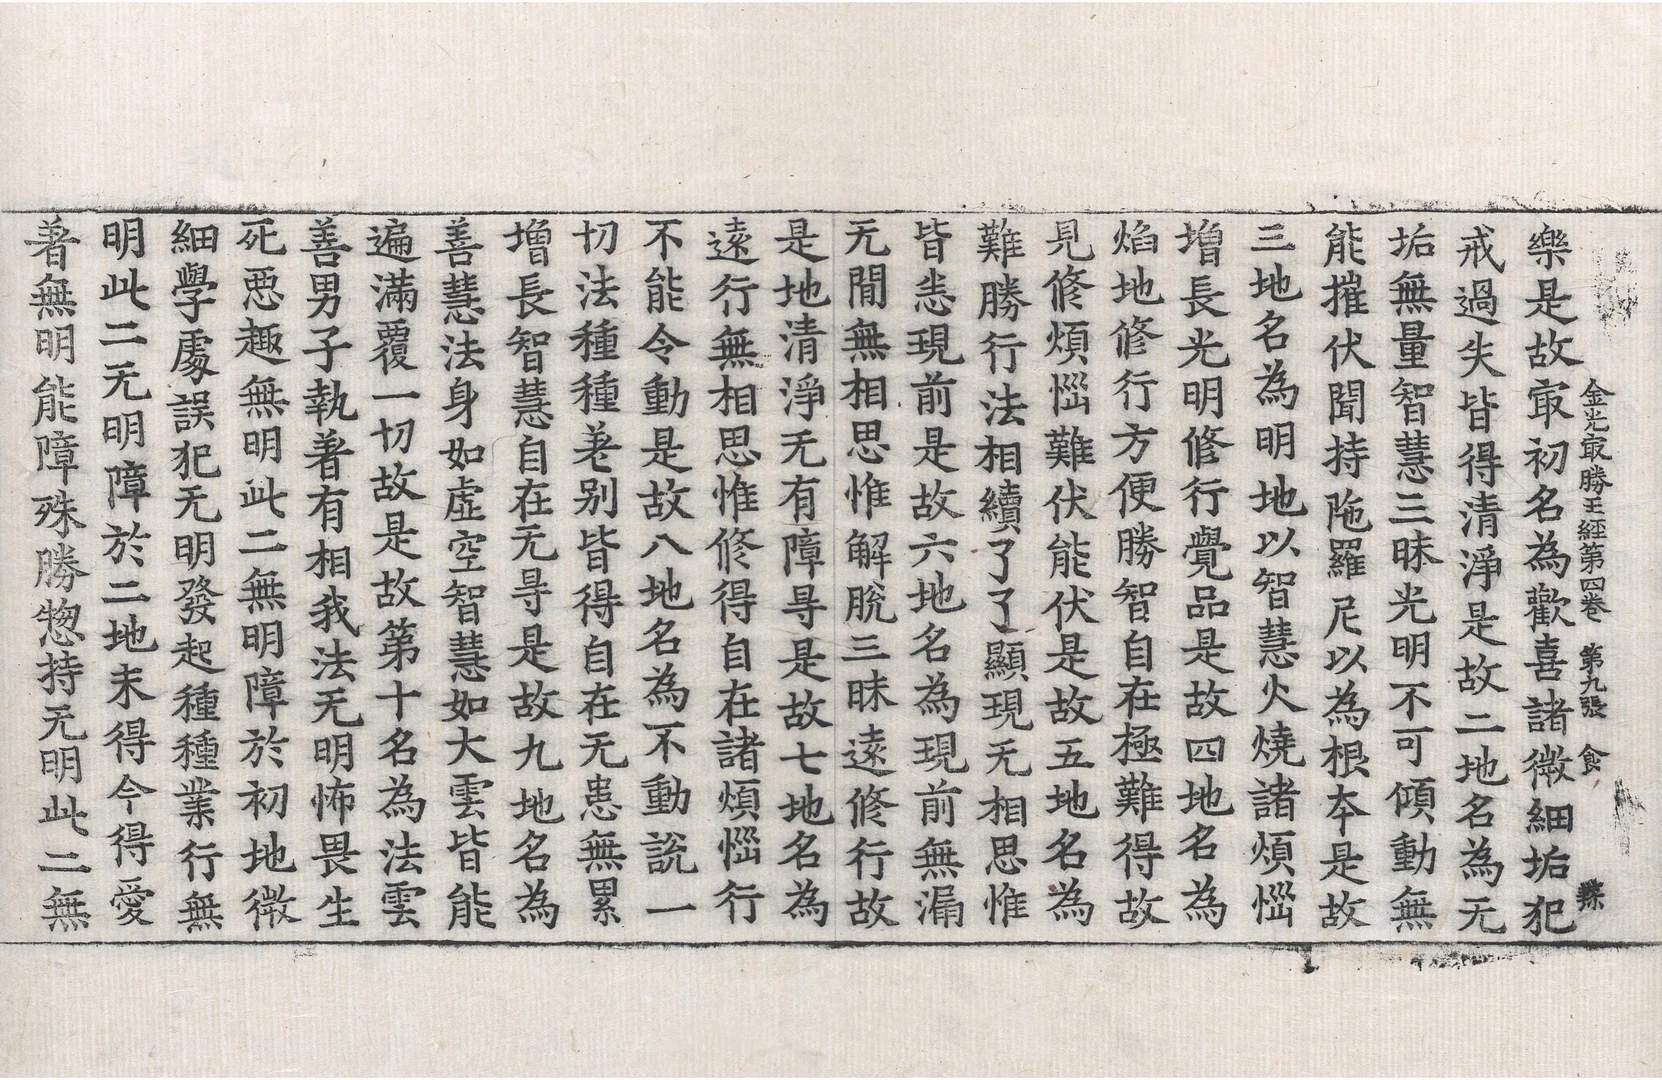 金光㝡勝王經第四卷 第九張 食
樂是故㝡初名為歡喜諸微細垢犯
戒過失皆得清淨是故二地名為无
垢無量智慧三昧光明不可傾動無
能摧伏聞持陁羅尼以為根本是故
三地名為明地以智慧火燒諸煩惱
增長光明修行覺品是故四地名為
焰地修行方便勝智自在極難得故
見修煩惱難伏能伏是故五地名為
難勝行法相續了了顯現无相思惟
皆悉現前是故六地名為現前無漏
无閒無相思惟解脫三昧遠修行故
是地清淨无有障㝵是故七地名為
遠行無相思惟修得自在諸煩惱行
不能令動是故八地名為不動說一
切法種種差別皆得自在无患無累
增長智慧自在无㝵是故九地名為
善慧法身如虛空智慧如大雲皆能
遍滿覆一切故是故第十名為法雲
善男子執著有相我法无明怖畏生
死惡趣無明此二無明障於初地微
細學處誤犯无明發起種種業行無
明此二无明障於二地未得今得愛
著無明能障殊勝惣持无明此二無